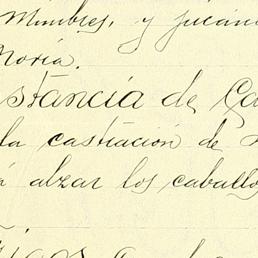 Mimbres, y
Noria.
stancia de Ca
la castración de
á alzar los caballo